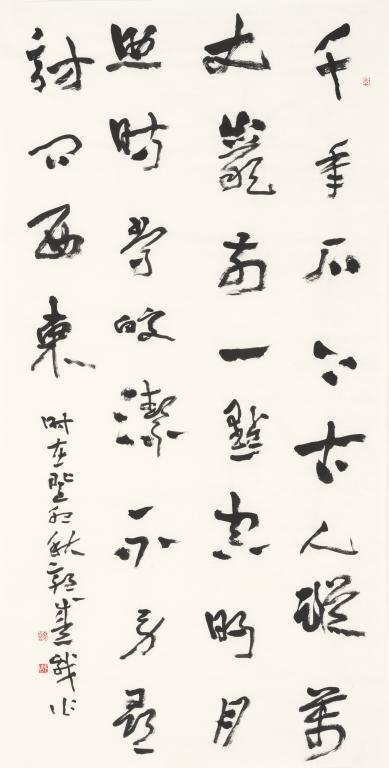 千年石上古人蹤萬
丈巖前一點空明月
照時常皎潔不勞尋
討問西東
时在